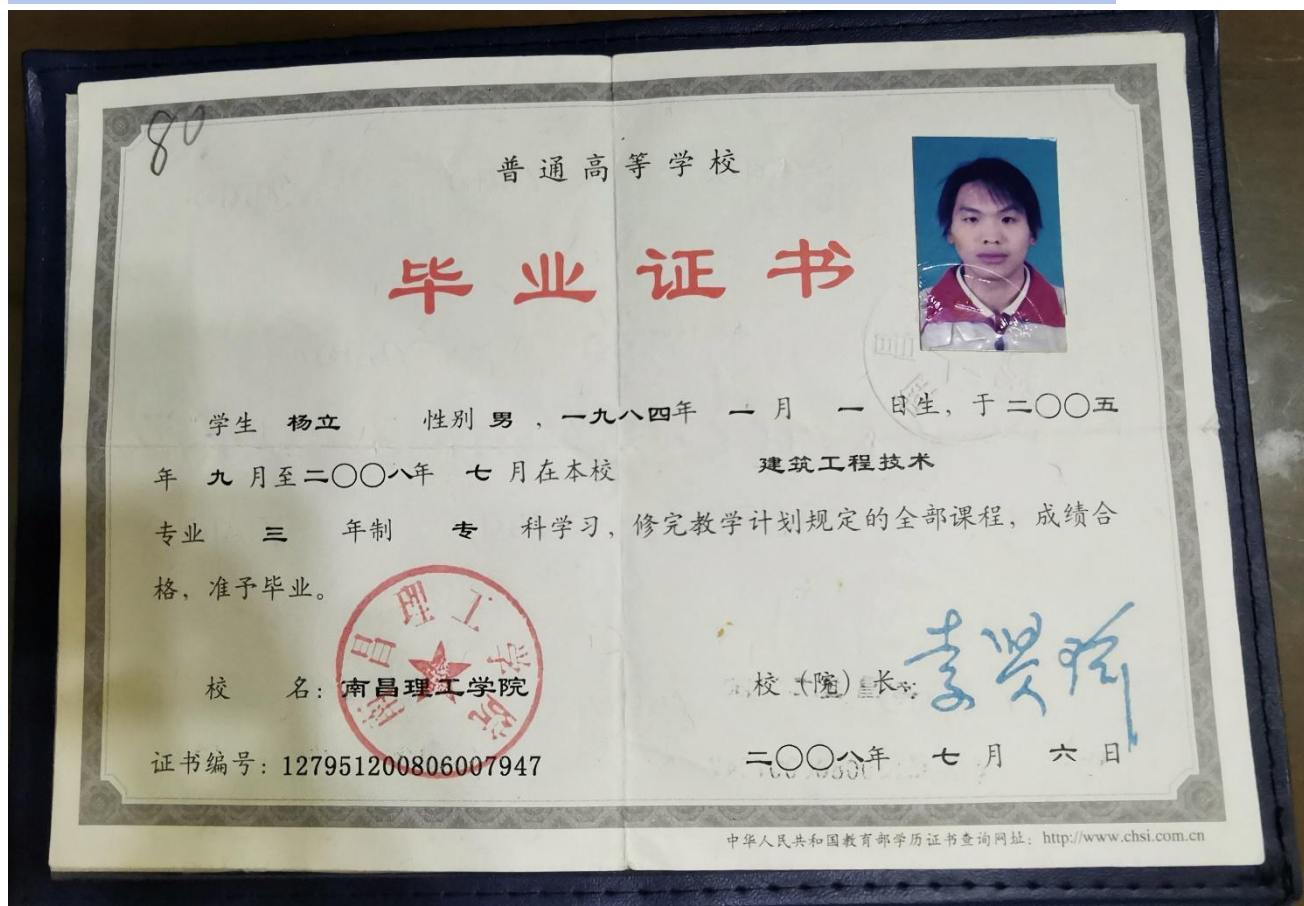 80
普通高等学校
毕业证书
学生 杨立 性别 男 ，一九八四年 一 月 一 日生，于二〇〇五
年 九 月至二〇〇八年 七 月在本校 建筑工程技术
专业 三 年制 专 科学习，修完教学计划规定的全部课程，成绩合
格，准予毕业。
南昌理工学院
校 名：南昌理工学院 校（院）长
证书编号：127951200806007947 二〇〇八年 七 月 六 日
中华人民共和国教育部学历证书查询网址：http://www.chsi.com.cn